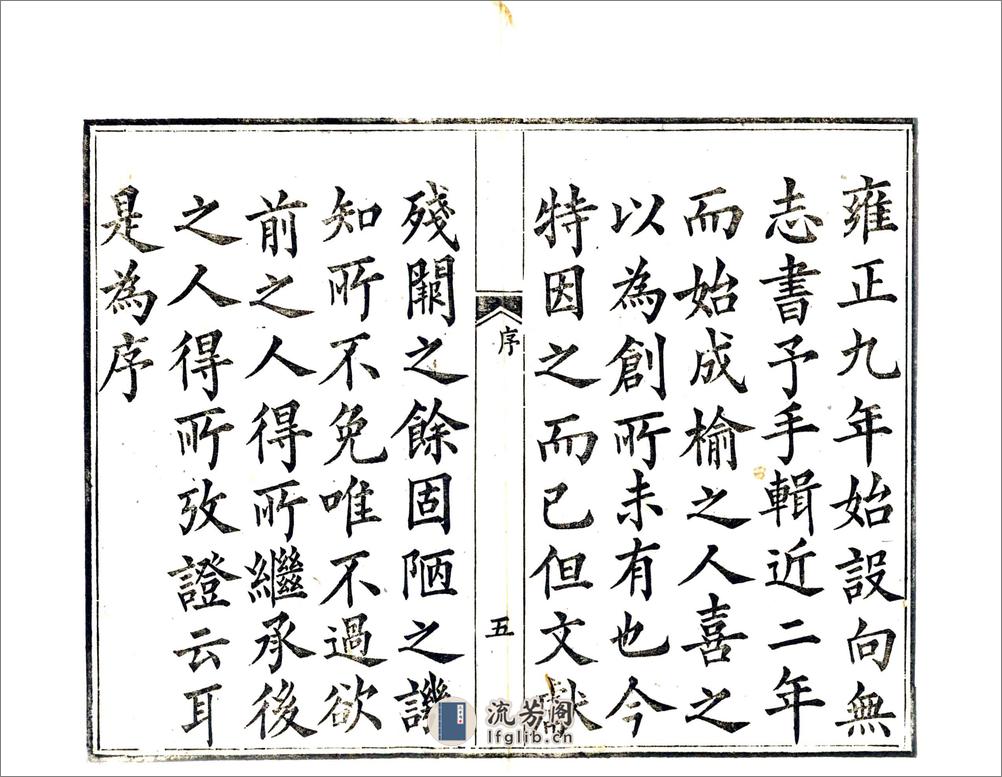 雍正九年始設向無
志書予手輯近二年
而始成榆之人喜之
以為創所未有也今
特因之而已但文獻
序
五
殘闕之餘固陋之譏
知所不免唯不過欲
前之人得所繼承後
之人得所攷證云耳
是為序
流芳阁
lfglib.cn